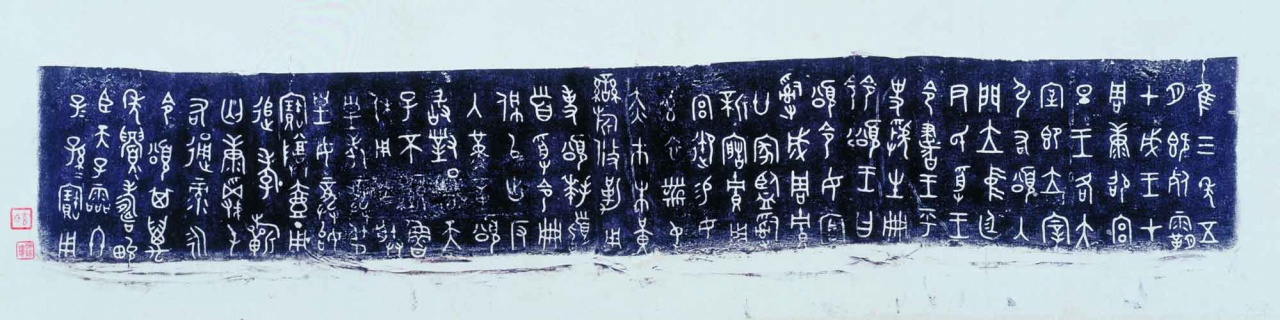 隹三年五
月既死霸
甲戌王才
周康卲宮
旦王各大
室即立宰
引右頌入
門立中廷
尹氏受王
令書王乎
史虢生冊
令頌王曰
頌令女官
𤔲成周貯
廿家監𤔲
新造貯用
宮御易女
玄衣黹屯
赤巿朱黃
䜌旂攸勒用
事頌拜稽
首受令冊
佩以出反
入堇章頌
敢對揚天
子不顯魯
休用乍朕
皇考龏弔
皇母龏始
寶尊壺用
追孝祈
匄康𨢩屯
右通彔永
令頌其萬
年眉壽畯
臣天子霝冬
子孫寶用